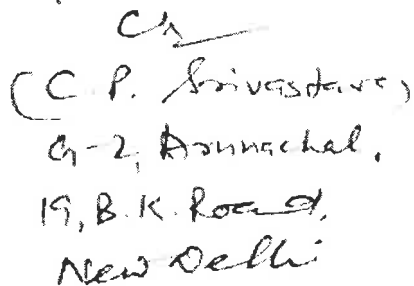 (C P. Srivastava)
G-2, Arunachal.
19, B.K. Road,
New Delhi